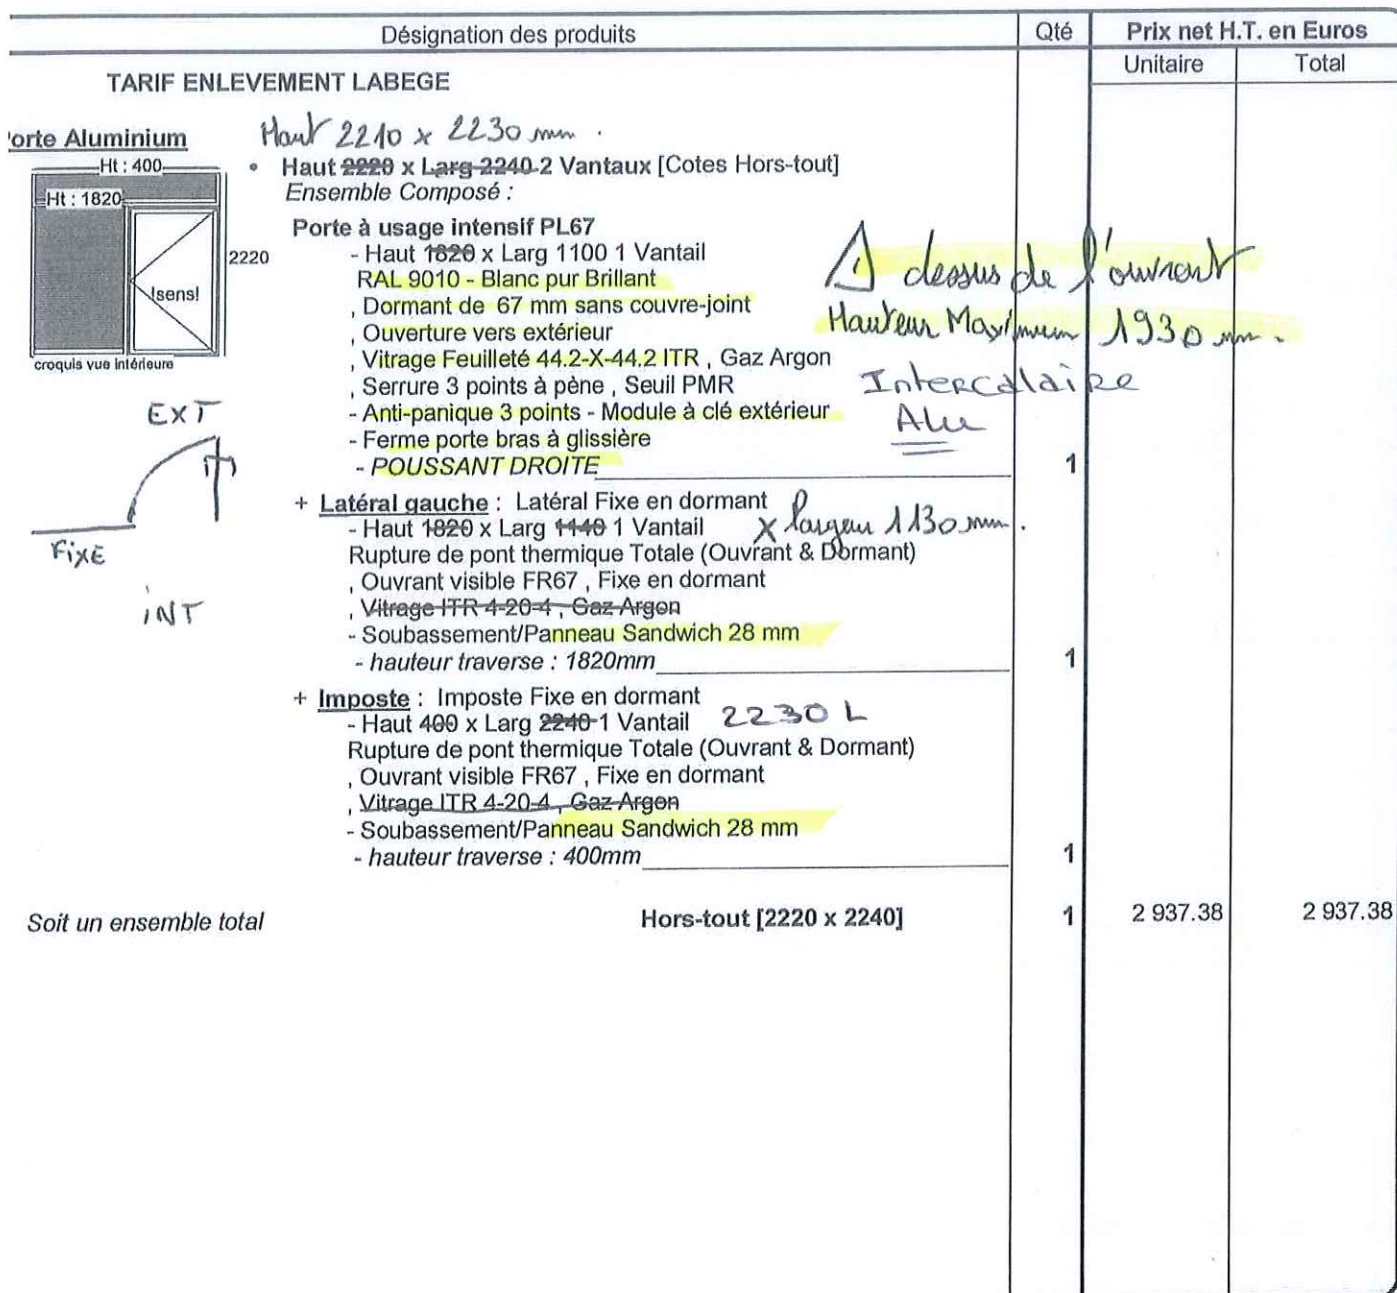 Désignation des produits Qté Prix net H.T. en Euros
Unitaire Total
TARIF ENLEVEMENT LABEGE
orte Aluminium Haut 2210 x 2230 mm.
Ht : 400
• Haut 2220 x Larg 2240 2 Vantaux [Cotes Hors-tout]
Ensemble Composé :
Ht : 1820
Porte à usage intensif PL67
- Haut 1820 x Larg 1100 1 Vantail
2220
RAL 9010 - Blanc pur Brillant
dessus de l'ouvrant
!sens!
, Dormant de 67 mm sans couvre-joint
, Ouverture vers extérieur
Hauteur Maximum 1930 mm.
, Vitrage Feuilleté 44.2-X-44.2 ITR , Gaz Argon
croquis vue intérieure
, Serrure 3 points à pène , Seuil PMR
Intercalaire
Alu
- Anti-panique 3 points - Module à clé extérieur
EXT
- Ferme porte bras à glissière
- POUSSANT DROITE 1
+ Latéral gauche : Latéral Fixe en dormant
- Haut 1820 x Larg 1140 1 Vantail X largeur 1130 mm.
Fixe
Rupture de pont thermique Totale (Ouvrant & Dormant)
, Ouvrant visible FR67 , Fixe en dormant
iNT
, Vitrage ITR 4-20-4 , Gaz Argon
- Soubassement/Panneau Sandwich 28 mm
- hauteur traverse : 1820mm 1
+ Imposte : Imposte Fixe en dormant
- Haut 400 x Larg 2240 1 Vantail 2230 L
Rupture de pont thermique Totale (Ouvrant & Dormant)
, Ouvrant visible FR67 , Fixe en dormant
, Vitrage ITR 4-20-4 , Gaz Argon
- Soubassement/Panneau Sandwich 28 mm
- hauteur traverse : 400mm 1
Soit un ensemble total Hors-tout [2220 x 2240] 1 2 937.38 2 937.38